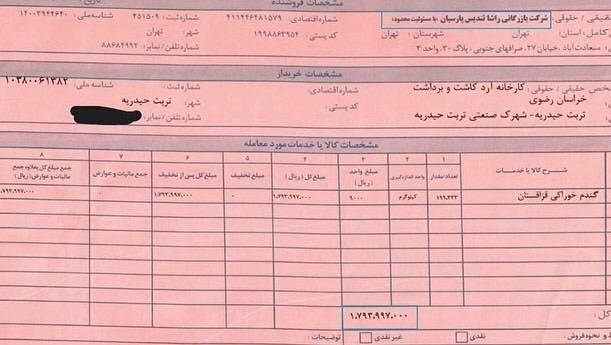 مشخصات فروشنده
حقیقی / حقوقی: شرکت بازرگانی راشا تندیس پارسیان (با مسئولیت محدود) شماره اقتصادی: ۴۱۱۴۴۶۴۸۱۵۷۹ شماره ثبت: ۴۵۱۵۰۹ شناسه ملی: ۱۴۰۰۳۹۴۴۶۴۰
کامل: استان: تهران شهرستان: تهران کد پستی: ۱۹۹۸۸۶۳۹۵۴ شهر: تهران
سعادت آباد، خیابان ۲۷، صرافهای جنوبی، پلاک ۳۰، واحد ۳ شماره تلفن / نمابر: ۸۸۶۸۴۹۹۲
مشخصات خریدار
شخص حقیقی / حقوقی: کارخانه آرد کاشت و برداشت شماره اقتصادی: شماره ثبت: شناسه ملی: ۱۰۳۸۰۰۶۱۳۸۲
خراسان رضوی کد پستی: شهر: تربت حیدریه
تربت حیدریه- شهرک صنعتی تربت حیدریه شماره تلفن / نمابر:
مشخصات کالا یا خدمات مورد معامله
۱ ۲ ۳ ۴ ۵ ۶ ۷ ۸
شرح کالا یا خدمات تعداد/مقدار واحد اندازه گیری مبلغ واحد (ریال) مبلغ کل (ریال) مبلغ تخفیف مبلغ کل پس از تخفیف جمع مالیات و عوارض جمع مبلغ کل بعلاوه جمع مالیات و عوارض (ریال)
گندم خوراکی قزاقستان ۱۹۹,۳۳۳ کیلوگرم ۹۰۰۰ ۱,۷۹۳,۹۹۷,۰۰۰ ۰ ۱,۷۹۳,۹۹۷,۰۰۰ ۰ ۱,۷۹۳,۹۹۷,۰۰۰
کل: ۱,۷۹۳,۹۹۷,۰۰۰
و نحوه فروش: نقدی غیر نقدی توضیحات: